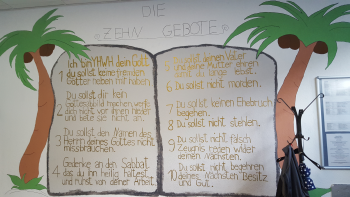 DIE
ZEHN GEBOTE
Ich bin YHWH dein Gott
1 du sollst keine fremden
Götter neben mir haben.
Du sollst dir
2 kein
Gottesbild machen, wirf
dich nicht vor ihnen nieder
und bete sie nicht an.
Du sollst den Namen des
3 Herrn deines Gottes nicht
missbrauchen.
Gedenke an den Sabbat,
4 das du ihn heilig hältst
und ruhst von deiner Arbeit.
5 Du sollst deinen Vater
und deine Mutter ehren
damit du lange lebst.
6 Du sollst nicht morden.
7 Du sollst keinen Ehebruch
begehen.
8 Du sollst nicht stehlen.
9 Du sollst nicht falsch
Zeugnis reden wider
deinen Nächsten.
Du sollst nicht begehren
10 deines nächsten Besitz
und Gut.